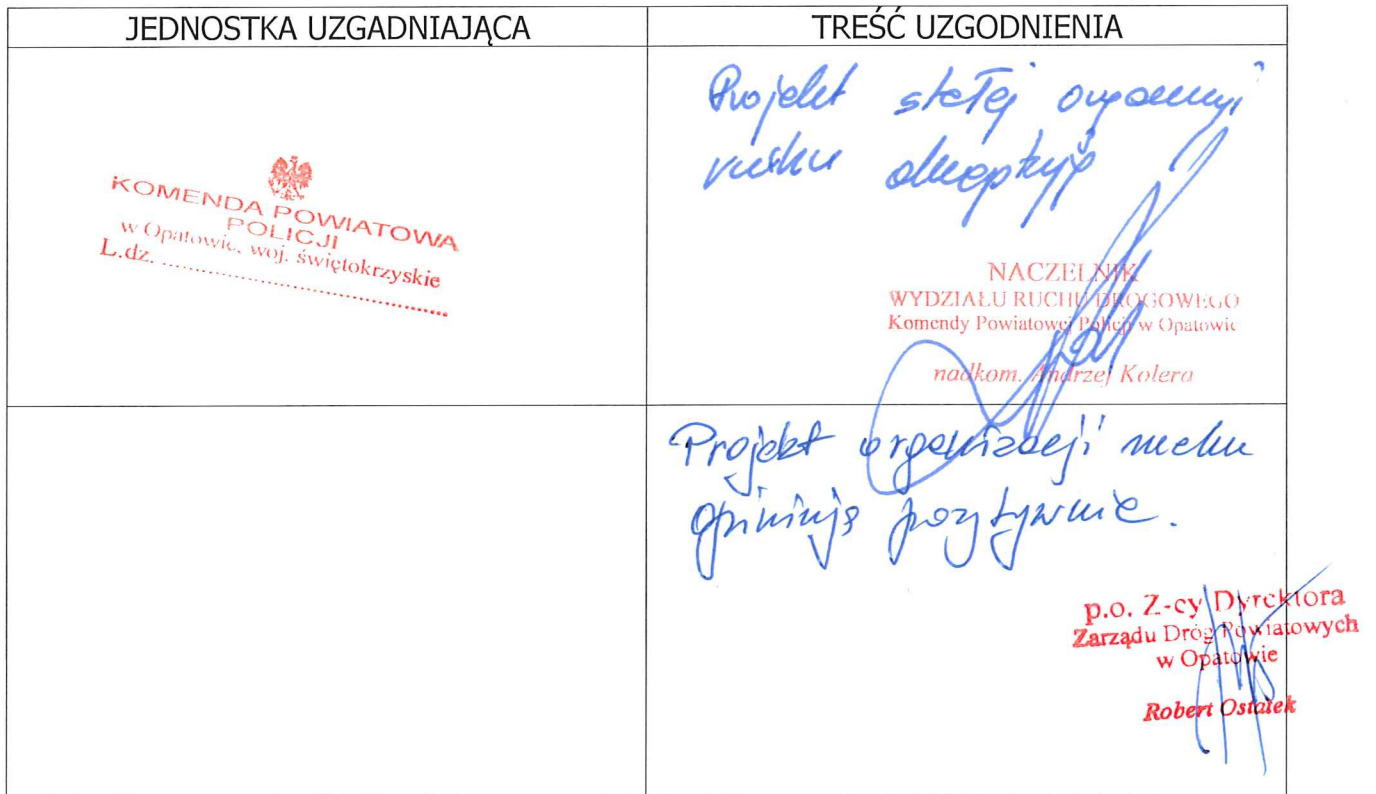 JEDNOSTKA UZGADNIAJĄCA
TREŚĆ UZGODNIENIA
KOMENDA POWIATOWA
POLICJI
w Opatowie, woj. świętokrzyskie
L.dz. ..........................................
Projekt stałej organizacji
ruchu akceptuję
NACZELNIK
WYDZIAŁU RUCHU DROGOWEGO
Komendy Powiatowej Policji w Opatowie
nadkom. Andrzej Kolera
Projekt organizacji ruchu
opiniuję pozytywnie.
p.o. Z-cy Dyrektora
Zarządu Dróg Powiatowych
w Opatowie
Robert Ostatek